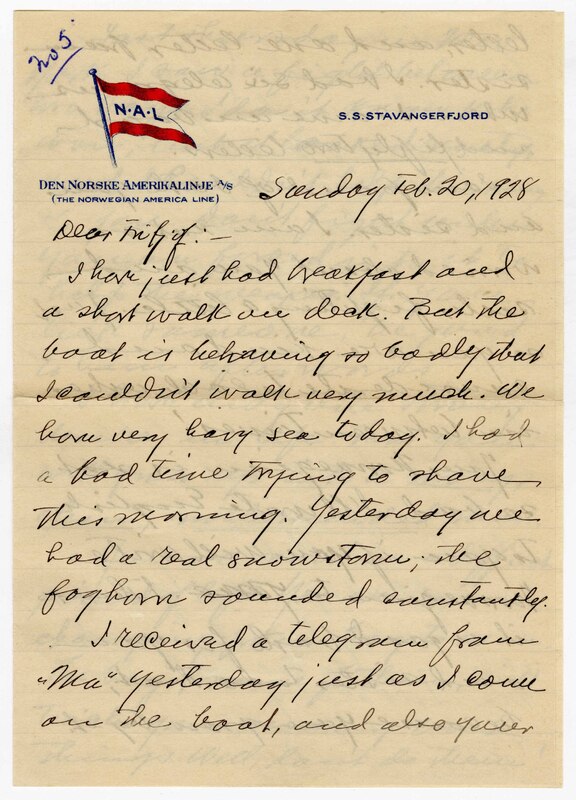 no 5
N·A·L
S.S. STAVANGERFJORD
DEN NORSKE AMERIKALINJE A/S
(THE NORWEGIAN AMERICA LINE)
Sunday Feb. 20, 1928
Dear
I have just had breakfast and
a short walk on deck. But the
boat is behaving so badly that
I couldn't walk very much. We
have very havy sea today. I had
a bad time trying to shave
this morning. Yesterday we
had a real snowstorm, the
foghorn sounded constantly.
I received a telegram from
"Ma" yesterday just as I come
on the boat, and also your